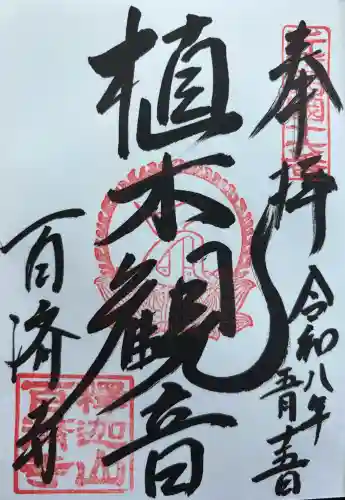 奉拝
令和八年
五月十五日
植木観音
百済寺
釋迦山
百済寺